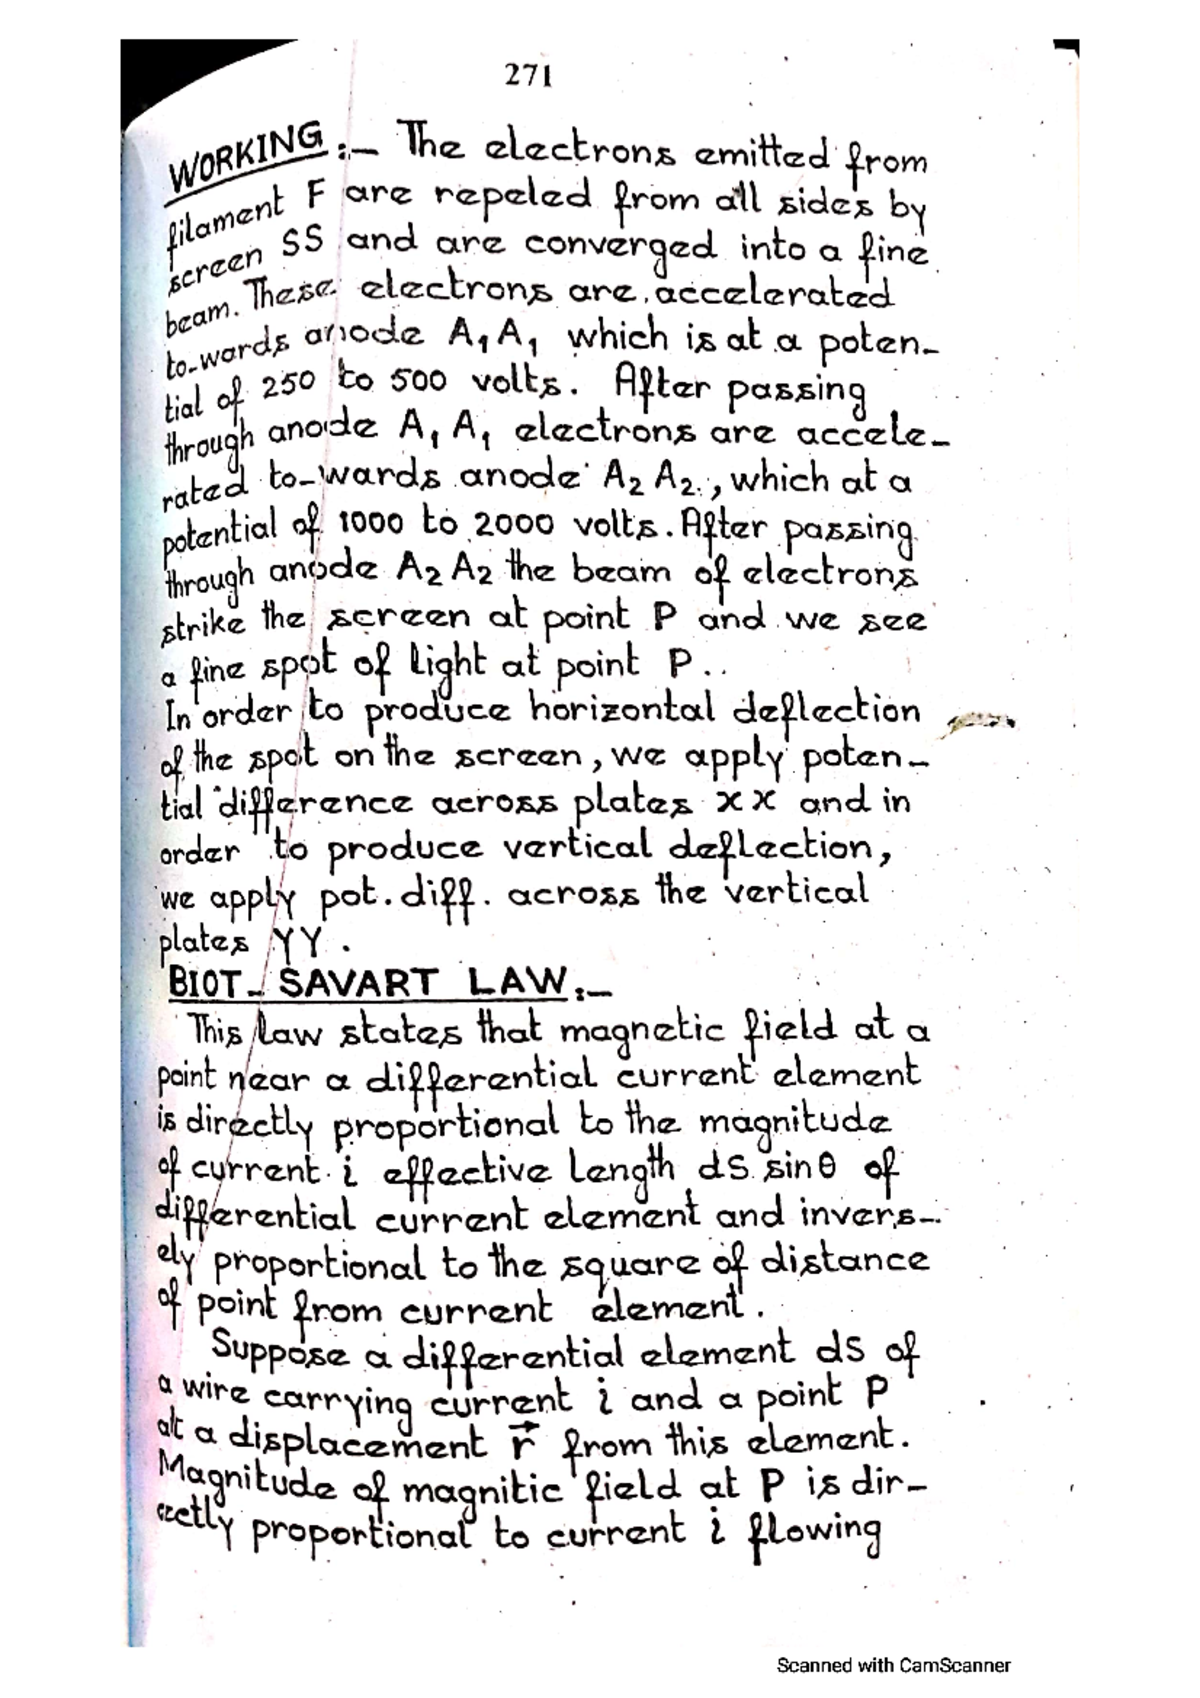 271
WORKING :- The electrons emitted from
filament F are repeled from all sides by
screen SS and are converged into a fine
beam. These electrons are accelerated
to-wards anode A₁ A₁ which is at a poten-
tial of 250 to 500 volts. After passing
through anode A₁ A₁ electrons are accele-
rated to-wards anode A₂ A₂, which at a
potential of 1000 to 2000 volts. After passing
through anode A₂ A₂ the beam of electrons
strike the screen at point P and we see
a fine spot of light at point P..
In order to produce horizontal deflection
of the spot on the screen, we apply poten-
tial difference across plates xx and in
order to produce vertical deflection,
we apply pot. diff. across the vertical
plates YY.
BIOT- SAVART LAW :-
This law states that magnetic field at a
point near a differential current element
is directly proportional to the magnitude
of current i effective length ds sinθ of
differential current element and invers-
ely proportional to the square of distance
of point from current element.
Suppose a differential element ds of
a wire carrying current i and a point P
at a displacement r⃗ from this element.
Magnitude of magnitic field at P is dir-
ectly proportional to current i flowing
Scanned with CamScanner